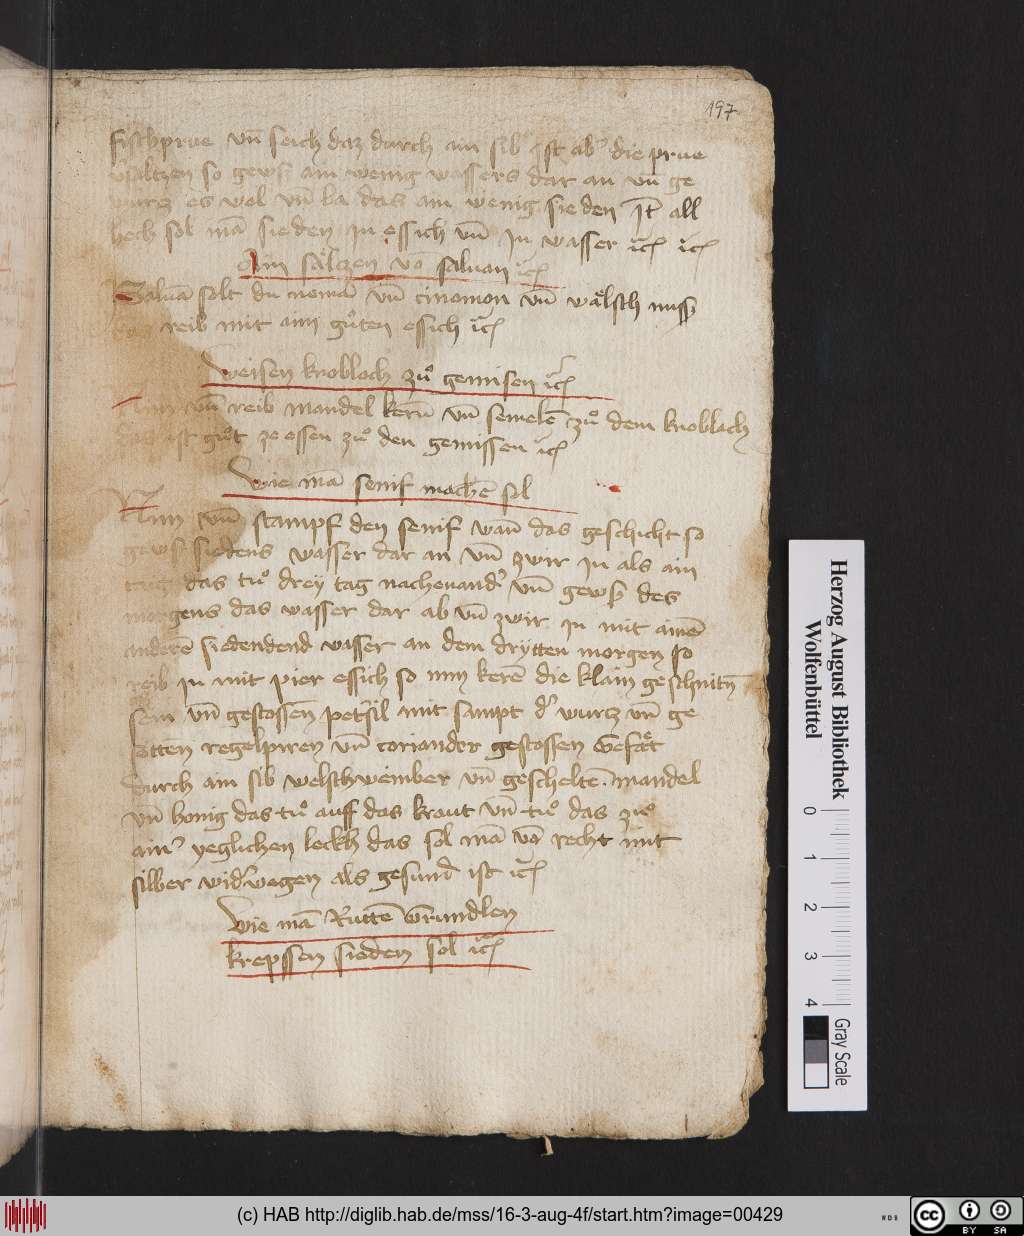 197
fischprüe vn̄ seich daz durch ain sib ist ab' die prue
vsaltzen so gewß ain wenig wassers dar an vn̄ ge
wurcz es wol vn̄ la das ain wenig sieden Jt̄ all
hech sol mā sieden in essich vn̄ in wasser ꝛc̄ ꝛc̄
Ain sältzen vō saluan ꝛc̄
Saluā solt du nemē vn̄ cinomon vn̄ wälsch nuss
reib mit ainē gůten essich ꝛc̄
Weisen knobloch zů gemisen ꝛc̄
Nim vn̄ reib mandel kern̄ vn̄ semelē zů dem knoblach
das ist gůt ze essen zů den gemissen ꝛc̄
Wie mā senif machē sol
Nim vn̄ stampf den senif wan̄ das geschicht so
gewß siedens wasser dar an vn̄ zwir in als ain
das tů drey tag nachenand' vn̄ gewß des
morgens das wasser dar ab vn̄ zwir in mit ainē
anderē siedendend wasser an dem drytten morgen so
reib in mit pier essich so nim kerē die klain geschnitn̄
sein vn̄ gestossen̄ pet'sil mit sampt d' wurtz vn̄ ge
sotten regelpiren vn̄ coriander gestossen Gefät
durch ain sib welschweinber vn̄ gescheltē mandel
vn̄ honig das tů auff das kraut vn̄ tů das zů
ain' yeglichen leckh das sol mā vō recht mit
silber wid'wegen als gesund ist ꝛc̄
Wie mā Ruttē Grundlen
krepssen sieden sol ꝛc̄
Herzog August Bibliothek
Wolfenbüttel
0 1 2 3 4
Gray Scale
(c) HAB http://diglib.hab.de/mss/16-3-aug-4f/start.htm?image=00429
cc BY SA